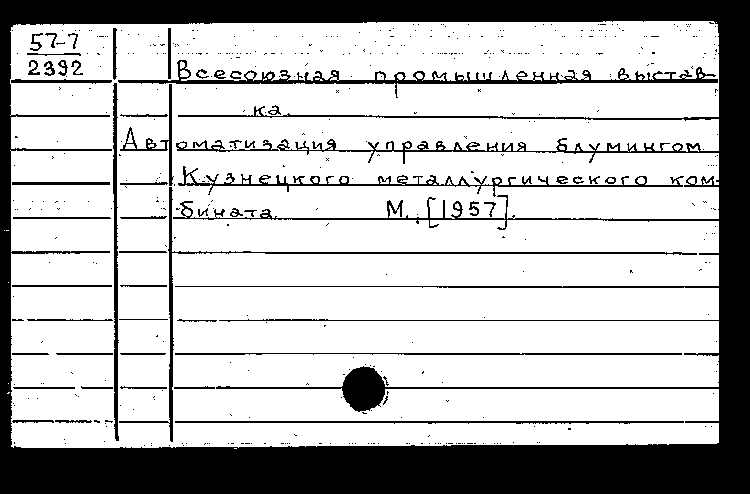 57-7
2392
Всесоюзная промышленная выстав-
ка.
Автоматизация управления блумингом
Кузнецкого металлургического ком-
бината. М., [1957].